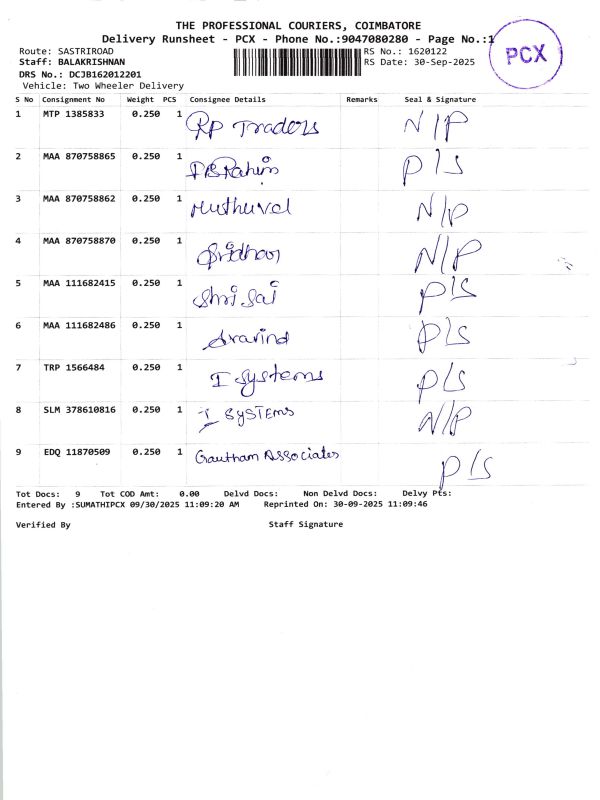 THE PROFESSIONAL COURIERS, COIMBATORE
Delivery Runsheet - PCX - Phone No.:9047080280 - Page No.:1
PCX
Route: SASTRIROAD RS No.: 1620122
Staff: BALAKRISHNAN RS Date: 30-Sep-2025
DRS No.: DCJB162012201
Vehicle: Two Wheeler Delivery
S No Consignment No Weight PCS Consignee Details Remarks Seal & Signature
1 MTP 1385833 0.250 1 RP Traders N/P
2 MAA 870758865 0.250 1 P/S
3 MAA 870758862 0.250 1 Muthuvel N/P
4 MAA 870758870 0.250 1 Sridhar N/P
5 MAA 111682415 0.250 1 Shri Sai P/S
6 MAA 111682486 0.250 1 Aravind P/S
7 TRP 1566484 0.250 1 I Systems P/S
8 SLM 378610816 0.250 1 I SYSTEMS N/P
9 EDQ 11870509 0.250 1 Gautham Associates P/S
Tot Docs: 9 Tot COD Amt: 0.00 Delvd Docs: Non Delvd Docs: Delvy Pts:
Entered By :SUMATHIPCX 09/30/2025 11:09:20 AM Reprinted On: 30-09-2025 11:09:46
Verified By Staff Signature